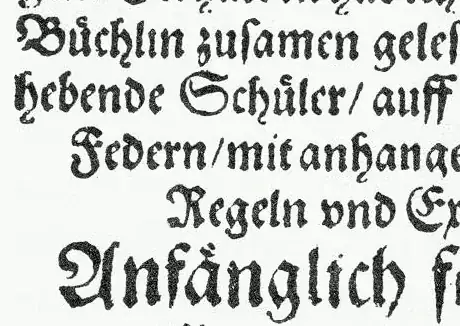 Büchlin zusamen geles
hebende Schüler/ auff
Federn/mit anhange
Regeln vnd Ex
Anfänglich